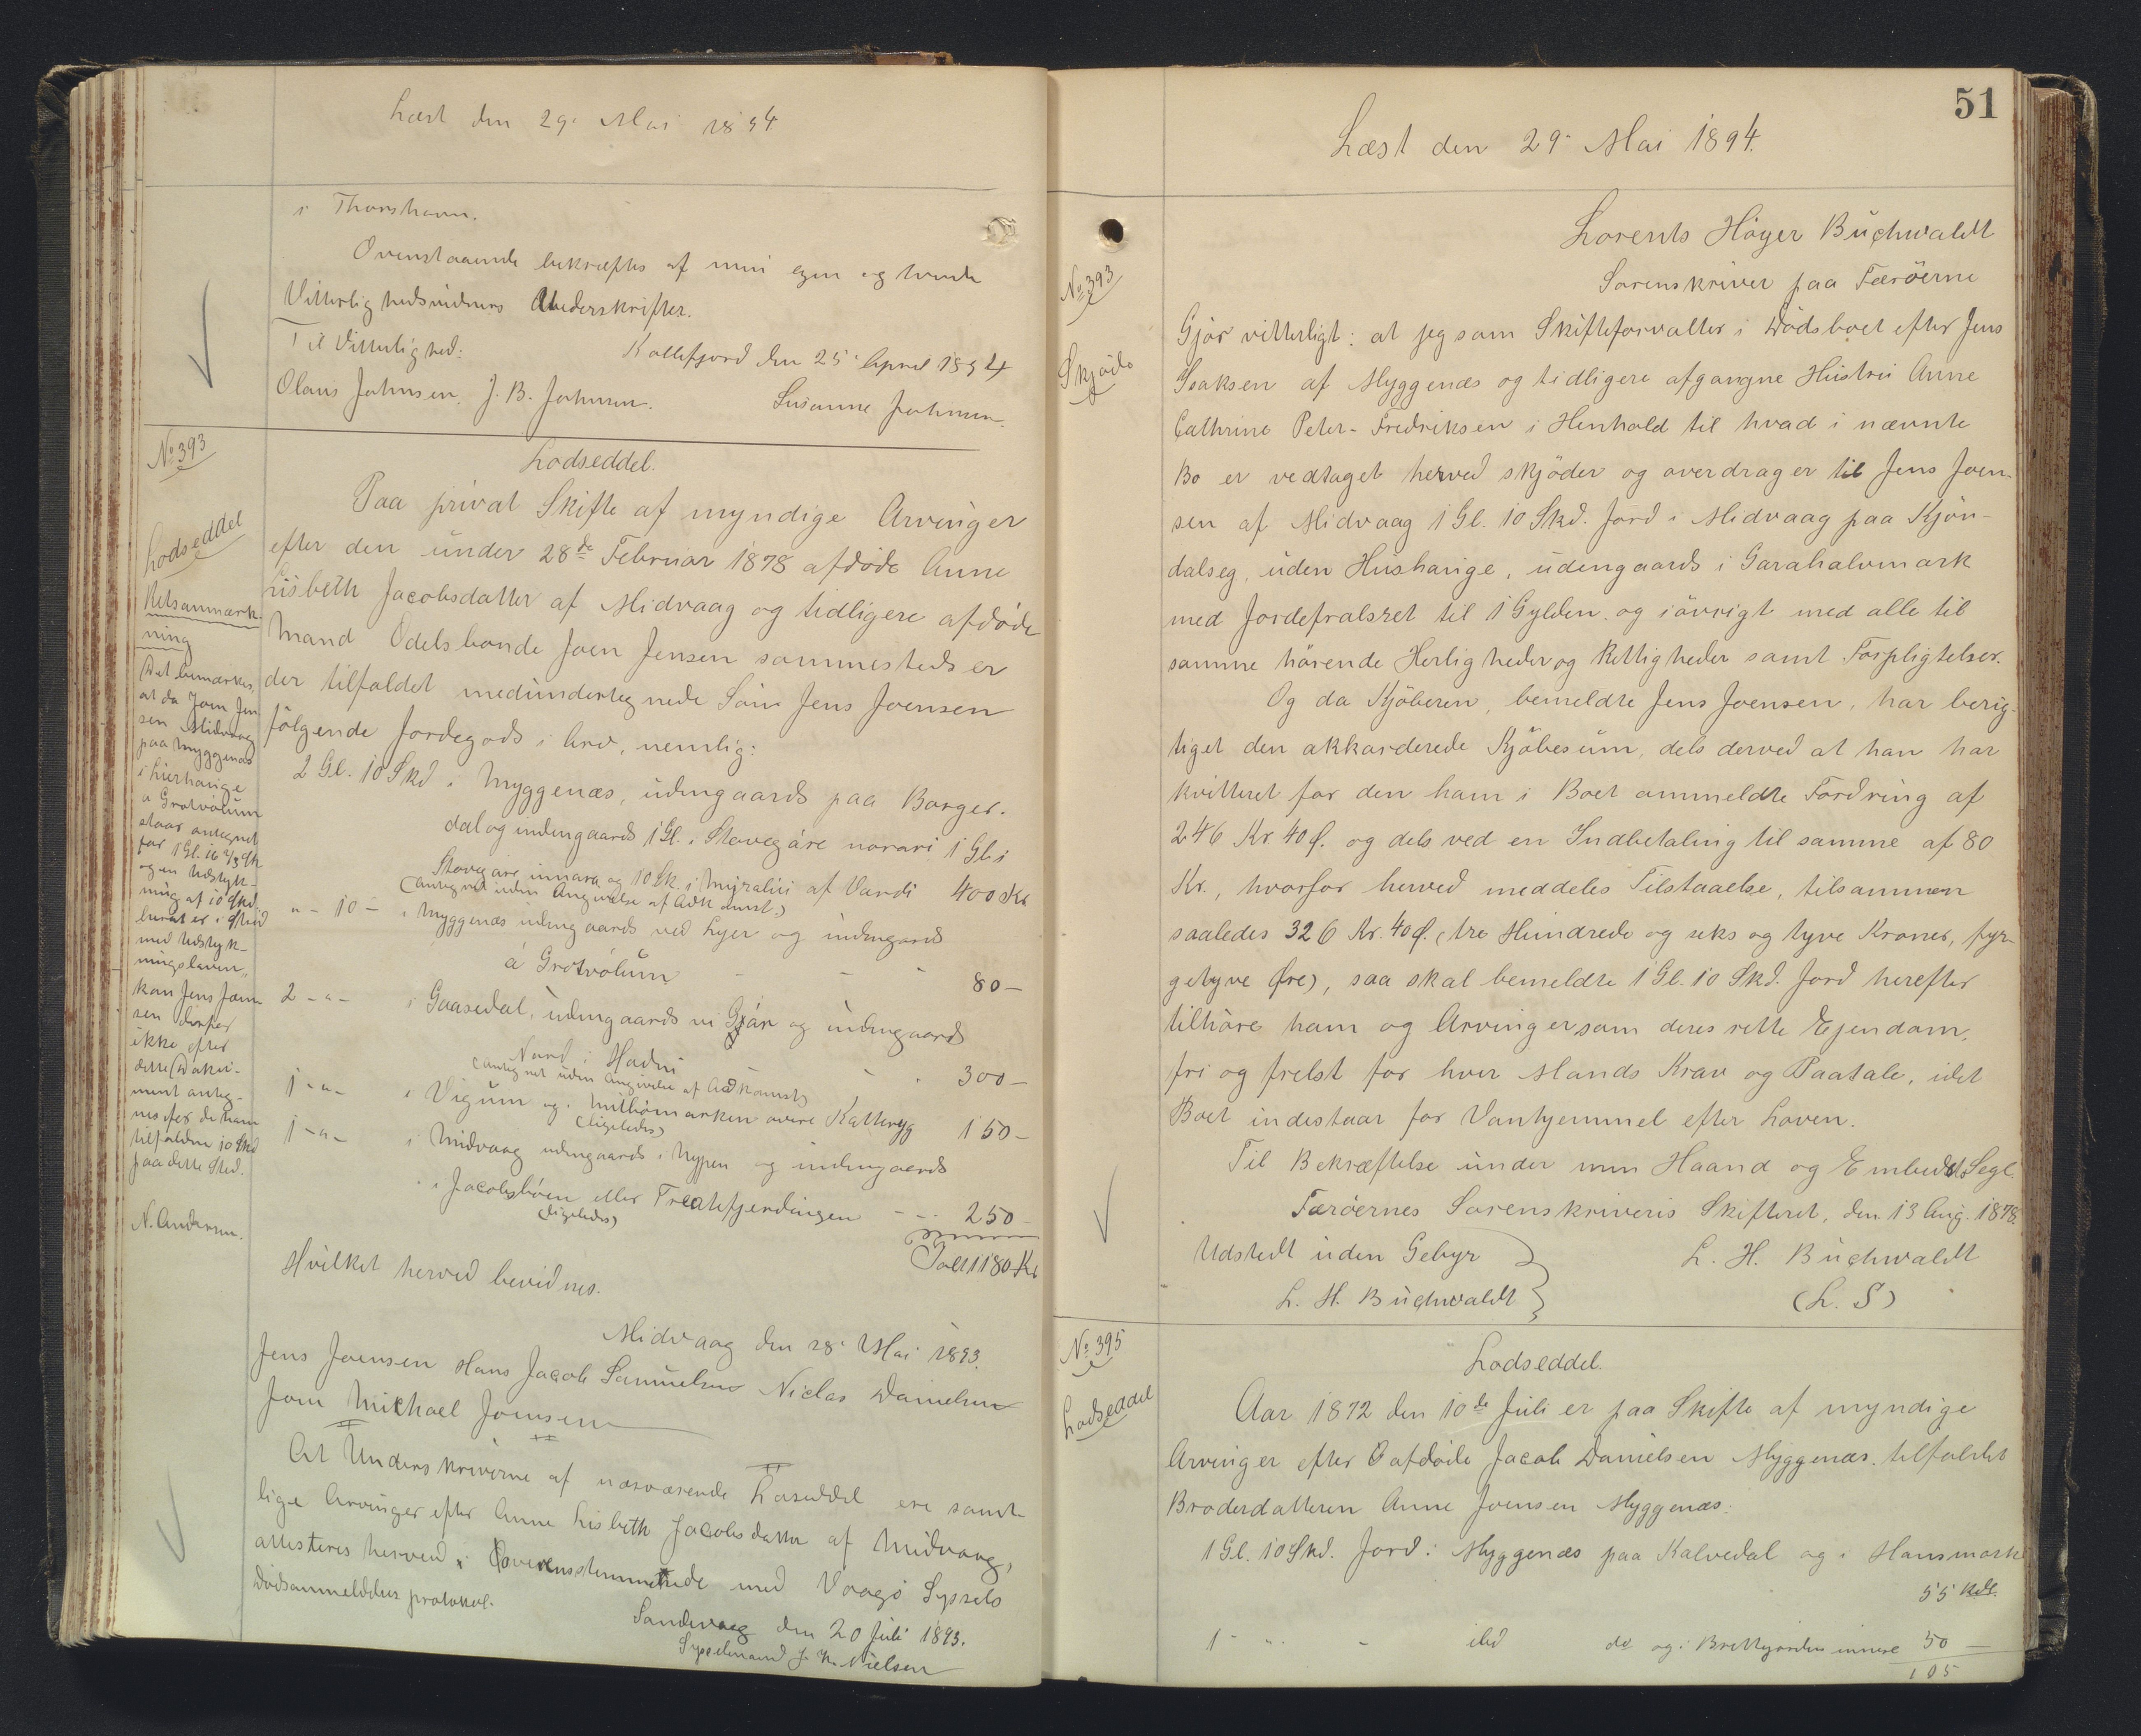 Læst den 29. Mai 1894
i Thorshavn.
Ovenstaaende bekræftes af min egen og tvende
Vitterlighedsvidners Underskrifter.
Til Vitterlighed:
Kollefjord den 25. April 1894
Olaus Johnsen. J. B. Johnsen.
Susanne Johnsen.
No 393
Lodseddel
Lodseddel.
Paa privat Skifte af myndige Arvinger
efter den under 28de Februar 1878 afdøde Anne
Lisbeth Jacobsdatter af Midvaag og tidligere afdøde
Mand Odelsbonde Joen Jensen sammesteds er
der tilfaldet medundertegnede Søn Jens Joensen
følgende Jordegods i Arv, nemlig:
2 Gl. 10 Skd i Myggenæs, udengaards paa Borger-
dal og indengaards 1 Gl. i Stovegáre norari 1 Gl i
Stovegáre innara og 10 Sk. i Myralui af Værdi 400 Kr
(antegnet uden Angivelse af Adkomst.)
" - 10 - i Myggenæs udengaards ved Lyer og indengaards
á Grotvólum - - - 80 -
2 - " - i Gaasedal, udengaards vi Gjár og indengaards
Nord i Hadni - - 300 -
(antegnet uden Angivelse af Adkomst)
1 - " - i Vigum og i Mittómarken overe Kattaryg 150 -
(ligeledes)
1 - " - i Midvaag udengaards i Nypen og indengaards
i Jacobsbóen eller Treatefjerdingen - - - 250
(ligeledes)
Ialt 1180 Kr
Retsanmærk-
ning
Det bemærkes,
at da Joen Jen-
sen Midvaag
paa Myggenæs
i Lierhauge
a Grotvólum
staar antegnet
for 1 Gl. 16 2/3 Sk
og en Udstyk-
ning af 10 Skd.
heraf er i Strid
med Udstyk-
ningsloven,
kan Jens Joen-
sen derfor
ikke efter
dette Doku-
ment anteg-
nes for de ham
tilfaldne 10 Skd
paa dette Sted.
N. Andersen.
Hvilket herved bevidnes.
Midvaag den 28. Mai 1893.
Jens Joensen Hans Jacob Samuelsen Niclas Danielsen
Joen Michael Joensen
At Underskriverne af nærværende Loseddel ere samt-
lige Arvinger efter Anne Lisbeth Jacobsdatter af Midvaag,
attesteres herved i Overensstemmelse med Vaagø Syssels
Dødsanmeldelses protokol.
Sandevaag den 20 Juli 1893.
Sysselmand J. N. Nielsen
51
Læst den 29. Mai 1894.
No 393
Skjøde
Lorents Höyer Buchwaldt
Sorenskriver paa Færöerne
Gjör vitterligt: at jeg som Skifteforvalter i Dödsboet efter Jens
Isaksen af Myggenæs og tidligere afgangne Hustru Anne
Cathrine Peter-Fredriksen i Henhold til hvad i nævnte
Bo er vedtaget herved skjöder og overdrager til Jens Joen-
sen af Midvaag 1 Gl. 10 Skd. Jord i Midvaag paa Kjön-
dalseg, uden Hushauge, udengaards i Garahalvmark
med Jordefralsret til 1 Gylden og iövrigt med alle til
samme hörende Herligheder og Rettigheder samt Forpligtelser.
Og da Kjöberen, bemeldte Jens Joensen, har berig-
tiget den akkorderede Kjöbesum, dels derved at han har
kvitteret for den ham i Boet anmeldte Fordring af
246 Kr. 40 Ø. og dels ved en Indbetaling til samme af 80
Kr., hvorfor herved meddeles Tilstaaelse, tilsammen
saaledes 326 Kr. 40 Ø. (tre Hundrede og seks og tyve Kroner, fyr-
getyve Øre), saa skal bemeldte 1 Gl. 10 Skd. Jord herefter
tilhöre ham og Arvinger som deres rette Ejendom,
fri og frelst for hver Mands Krav og Paatale, idet
Boet indestaar for Vanhjemmel efter Loven.
Til Bekræftelse under min Haand og Embeds Segl.
Færöernes Sorenskriveris Skifteret, den 13 Aug. 1878.
Udstedt uden Gebyr
L. H. Buchwaldt
L. H. Buchwaldt
(L. S)
No 395
Lodseddel
Lodseddel.
Aar 1872 den 10de Juli er paa Skifte af myndige
Arvinger efter afdøde Jacob Danielsen Myggenæs tilfaldet
Broderdatteren Anne Joensen Myggenæs:
1 Gl. 10 Skd. Jord i Myggenæs paa Kalvedal og i Hansmark
55 Rdl.
1 - " - ibid do og i Brettegarden innere 50 -
105